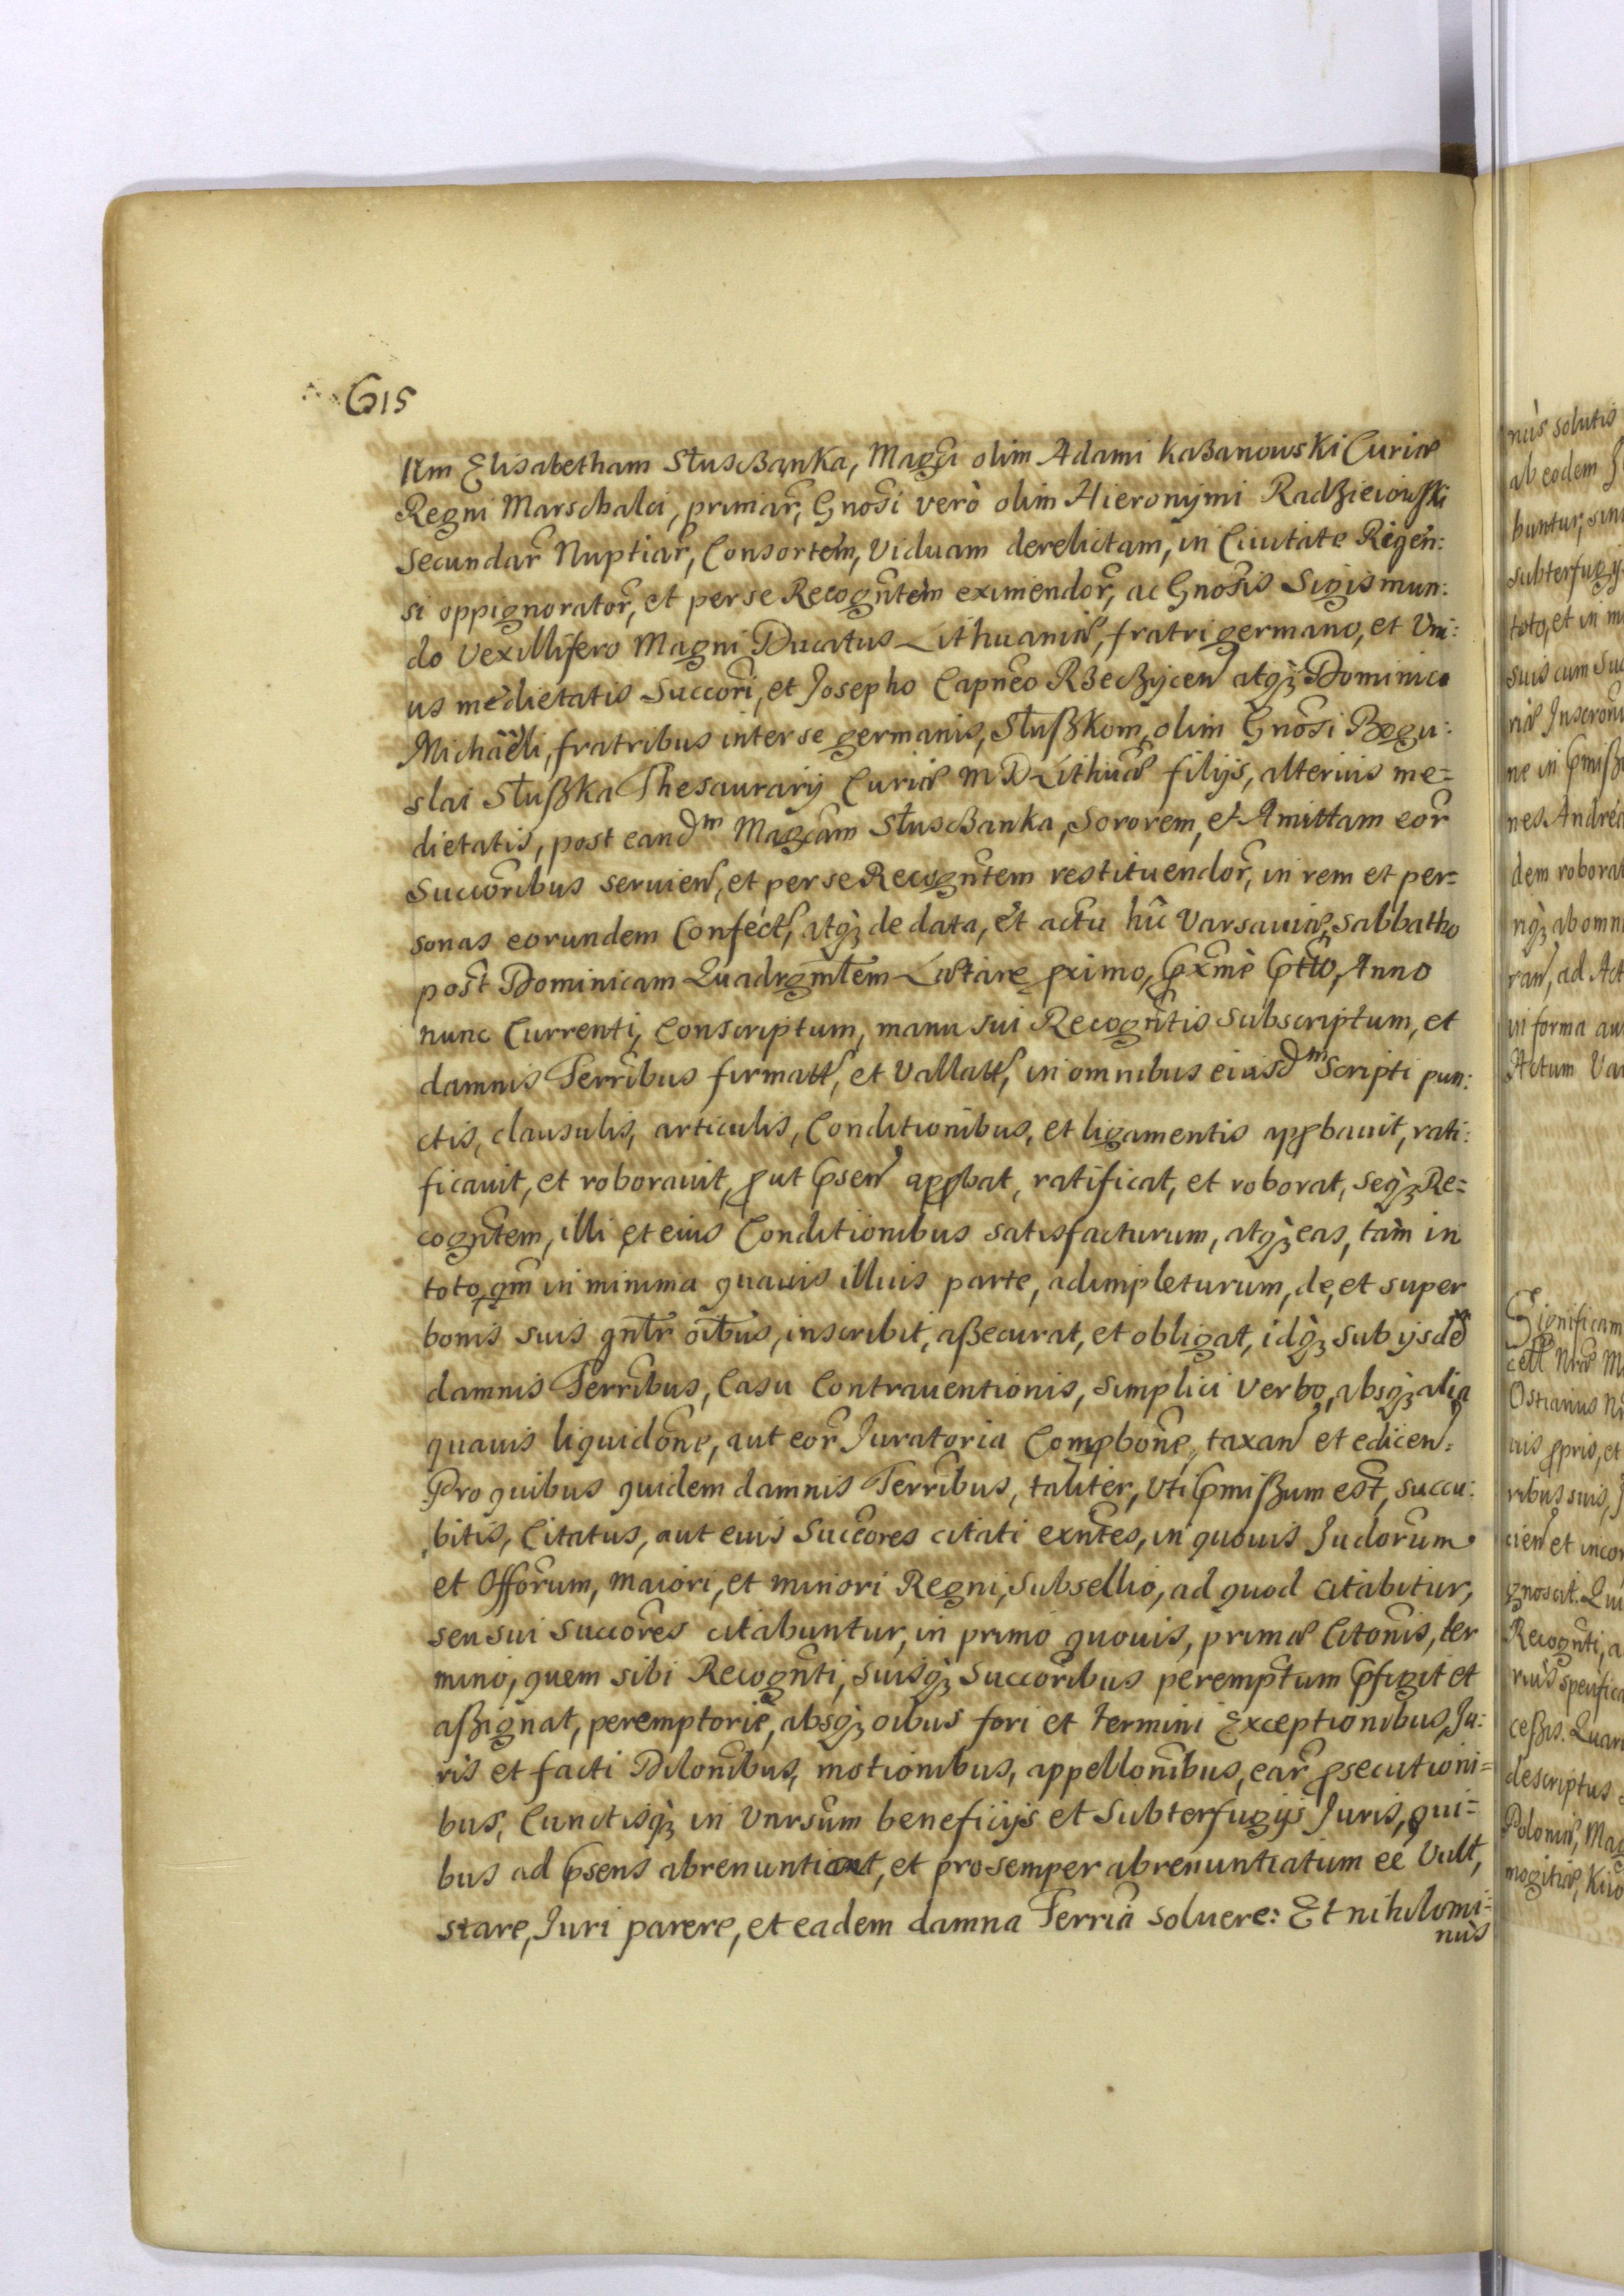 615
llm Elisabetham Słuscßanka, Magci olim Adami Kaßanowski Curiæ
Regni Marschalci, primar, Gnosi verò olim Hieronymi Radzieiowski
secundar Nuptiar, Consortem, Viduam derelictam, in Ciuitate Rigen:
si oppignorator, et per se Recogntem eximendor, ac Gnosis Sigismun:
do Vexillifero Magni Ducatus Lithuaniæ, fratri germano, et Vni:
us medietatis Succori, et Josepho Capneo Rzeczycen atq3 Dominico
Michaëli, fratribus inter se germanis, Słußkom, olim Gnosi Bogu:
slai Słußka Thesaurarij Curiæ M D Lithuæ filijs, alterius me=
dietatis, post eandm Magcam Słuscßanka, Sororem, et Amittam eor
Succoribus seruien, et per se Recogntem restituendor, in rem et per=
sonas eorundem Confect, atq3 de data, et actu hic Varsauiæ, Sabbatho
post Dominicam Quadrgmlem Lætare proximo, pxmè ptto, Anno
nunc Currenti, Conscriptum, manu sui Recogntis subscriptum, et
damnis Terribus firmatt, et Vallatt, in omnibus eiusdm Scripti pun:
ctis, clausulis, articulis, Conditionibus, et ligamentis approbauit, rati:
ficauit, et roborauit, prout psen approbat, ratificat, et roborat, seq3 Re=
cogntem, illi et eius Conditionibus satisfacturum, atq3 eas, tàm in
toto, qm in minima quauis illius parte, adimpleturum, de, et super
bonis suis gnlr oibus, inscribit, aßecurat, et obligat, idq3 sub ijsdem
damnis Terribus, Casu Contrauentionis, simplici verbo, absq3 alia
quauis liquidone, aut eor Juratoria Comprobone, taxan et edicen.
Pro quibus quidem damnis Terribus, taliter, vti pmißum est, succu:
bitis, Citatus, aut eius Succores citati exntes, in quouis Judorum
et Offorum, maiori, et minori Regni, Subsellio, ad quod citabitur,
seu sui Succores citabuntur, in primo quouis, primæ Citonis, ter
mino, quem sibi Recognti, suisq3 Succoribus peremptum pfigit et
aßignat, peremptoriè, absq3 oibus fori et termini Exceptionibus, Ju:
ris et facti Dilonibus, motionibus, appellonibus, ear prosecutioni=
bus, Cunctisq3 in Vnrsum beneficijs et Subterfugijs Juris, qui=
bus ad psens abrenuntiat, et pro semper abrenuntiatum eê Vult,
stare, Juri parere, et eadem damna Terria soluere: Et nihilomi=
nùs